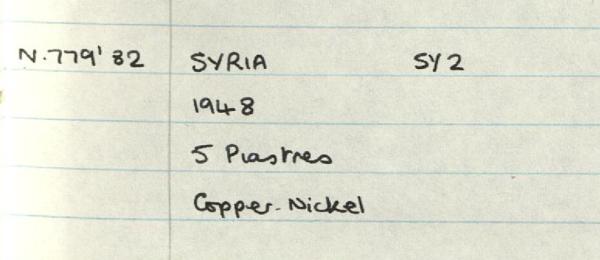 N.779'82 SYRIA SY2
1948
5 Piastres
Copper-Nickel